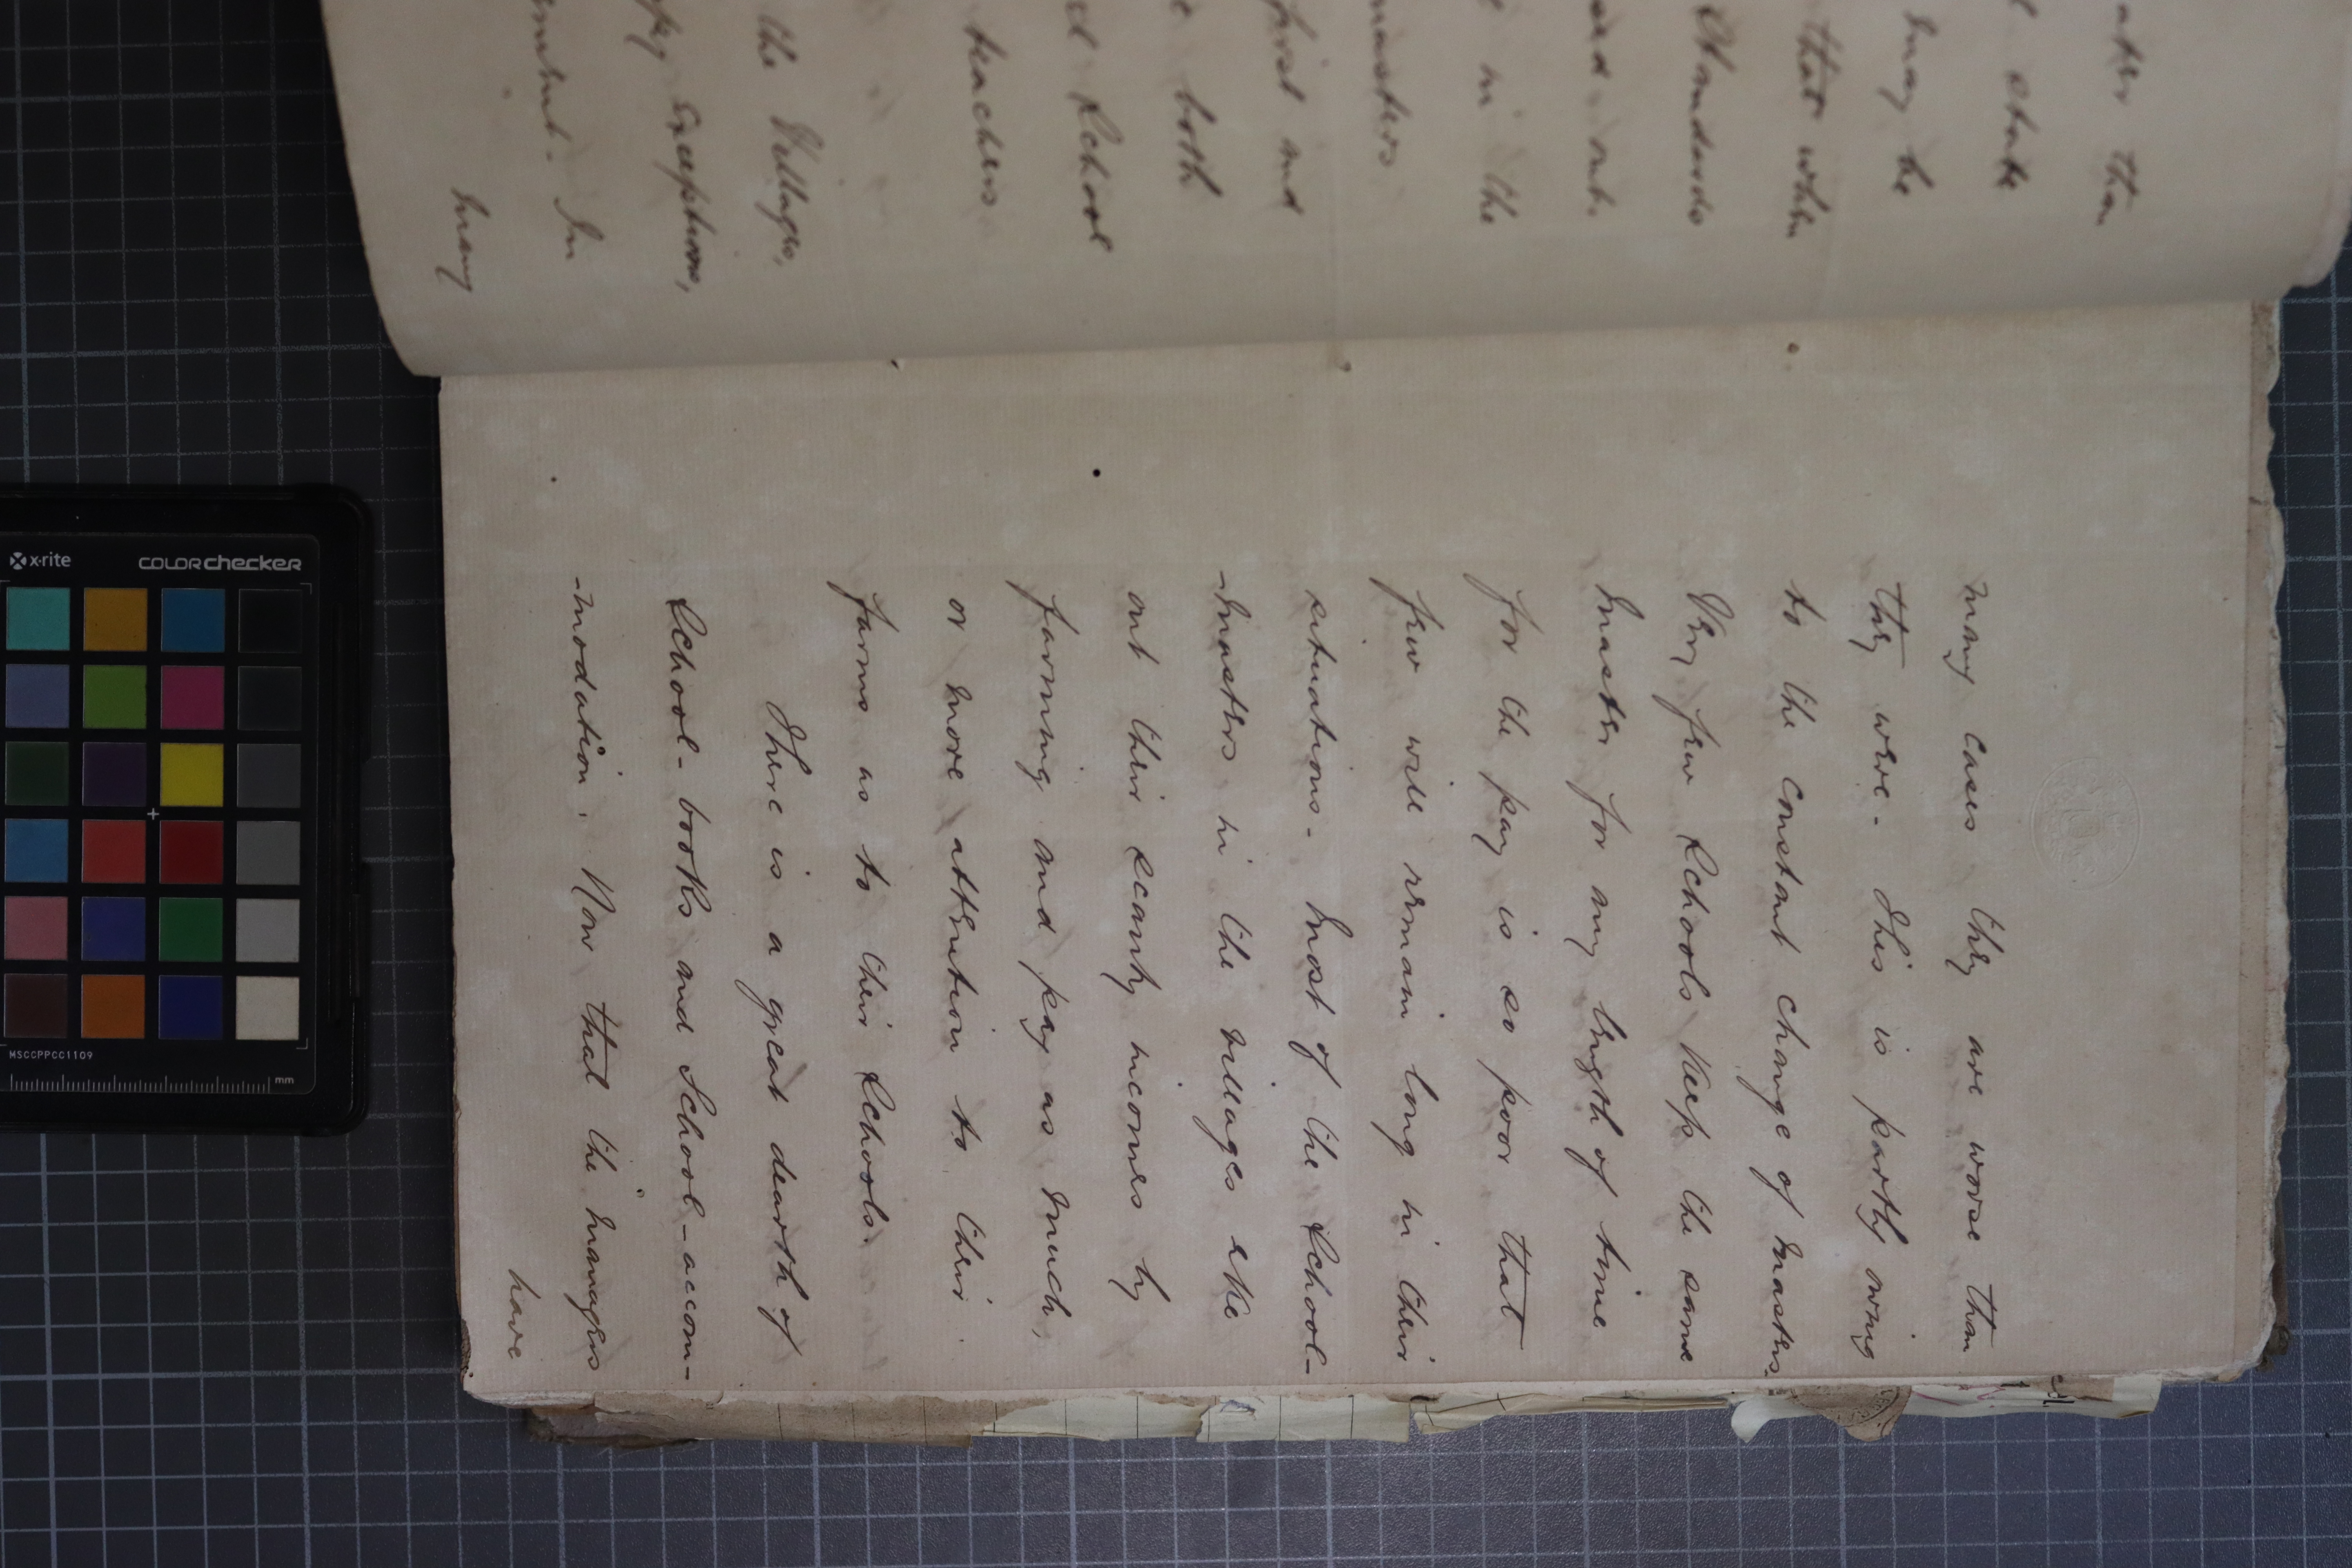 aker than
state
may be
that when
Standards
sed out.
in the
masters
first and
both
School
teachers
the Villages,
exceptions,
In
many
many cases they are worse than
they were. This is partly owing
to the constant change of masters.
Very few Schools keep the same
master for any length of time
for the pay is so poor that
few will remain long in their
situations. Most of the School-
-masters in the villages eke
out their scanty incomes by
farming and pay as much,
or more attention to their
farms as to their Schools.
There is a great dearth of
School-books and School-accom-
-modation. Now that the managers
have
x-rite COLORchecker
MSCCPPCC1109
mm